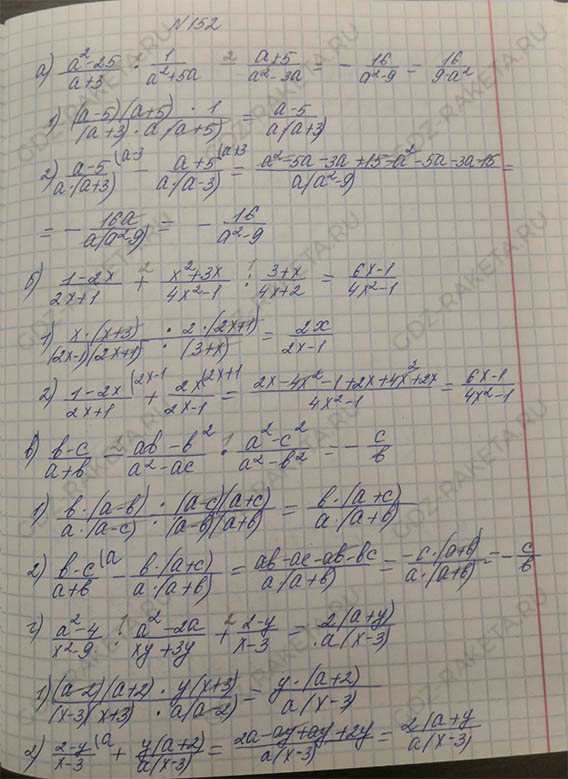 №152
а) (a²-25)/(a+3) · 1/(a²+5a) - (a+5)/(a²-3a) = - 16/(a²-9) = 16/(9-a²)
1) ((a-5)(a+5) · 1)/((a+3) · a(a+5)) = (a-5)/(a(a+3))
2) (a-5)/(a·(a+3)) (a-3 - (a+5)/(a·(a-3)) (a+3 = (a²-5a-3a+15-a²-5a-3a-15)/(a(a²-9)) =
= - 16a/(a(a²-9)) = - 16/(a²-9)
б) (1-2x)/(2x+1) + (x²+3x)/(4x²-1) : (3+x)/(4x+2) = (6x-1)/(4x²-1)
1) (x·(x+3))/((2x-1)(2x+1)) · (2·(2x+1))/((3+x)) = 2x/(2x-1)
2) (1-2x)/(2x+1) (2x-1 + 2x/(2x-1) (2x+1 = (2x-4x²-1+2x+4x²+2x)/(4x²-1) = (6x-1)/(4x²-1)
в) (b-c)/(a+b) - (ab-b²)/(a²-ac) · (a²-c²)/(a²-b²) = - c/b
1) (b·(a-b))/(a·(a-c)) · ((a-c)(a+c))/((a-b)(a+b)) = (b·(a+c))/(a·(a+b))
2) (b-c)/(a+b) (a - (b·(a+c))/(a·(a+b)) = (ab-ac-ab-bc)/(a(a+b)) = (-c·(a+b))/(a·(a+b)) = - c/b
г) (a²-4)/(x²-9) : (a²-2a)/(xy+3y) + (2-y)/(x-3) = 2(a+y)/(a(x-3))
1) ((a-2)(a+2) · y(x+3))/((x-3)(x+3) · a(a-2)) = (y·(a+2))/(a(x-3))
2) (2-y)/(x-3) (a + (y(a+2))/(a(x-3)) = (2a-ay+ay+2y)/(a(x-3)) = 2(a+y/(a(x-3)
GDZ-RAKETA.RU